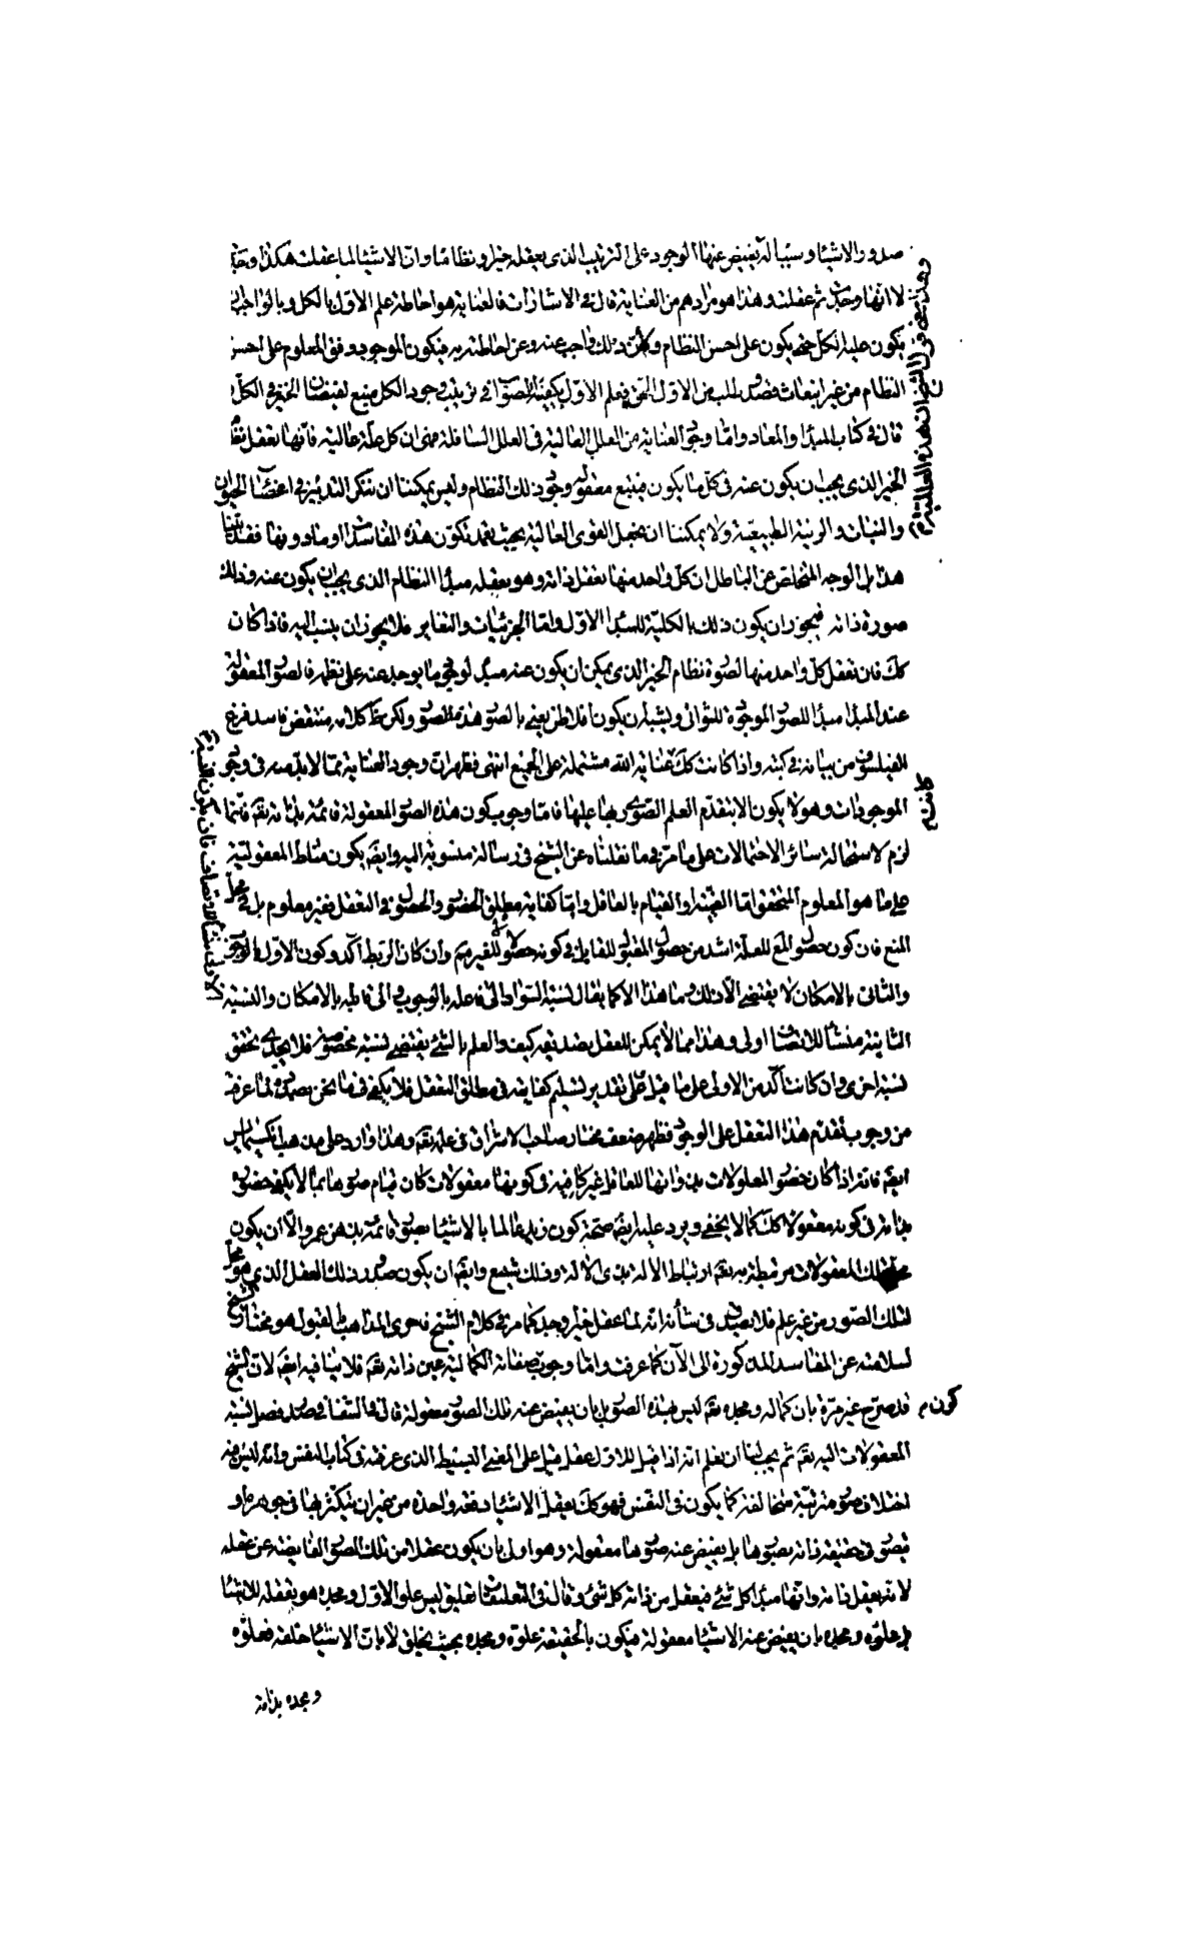 صدور الاشياء وسببا له يفيض عنها الوجود على الترتيب الذى يعقله خيرا ونظاما وان الاشياء لما عقلت هكذا وجدت
لا انها وجدت ثم عقلت وهذا هو مرادهم من العناية قال فى الاشارات فالعناية هو احاطة علم الاول بالكل وبالواجب ان
يكون عليه الكل حتى يكون على احسن النظام وبان ذلك واجب عنه وعن احاطته به فيكون الموجود وفق المعلوم على احسن
النظام من غير انبعاث قصد وطلب من الاول الحق فعلم الاول بكيفية الصواب فى ترتيب وجود الكل منبع لفيضان الخير فى الكل
قال فى كتاب المبدا والمعاد واما وجود العناية من العلل العالية فى العلل السافلة فهى ان كل علة عالية فانها تعقل نظام
الخير الذى يجب ان يكون عنه فى كل ما يكون فيتبع معقوله وجود ذلك النظام وليس يمكننا ان ننكر التدبير فى اعضاء الحيوان
والنبات والزينة الطبيعية ولا يمكننا ان نجعل القوى العالية بحيث تعمد تكون هذه الفاسدات او ما دونها فقد بينا
هذا بل الوجه المتخلص عن الباطل ان كل واحد منها يعقل ذاته وهو يعقله مبدا النظام الذى يجب ان يكون عنه وذلك
صورة ذاته فيجوز ان يكون ذلك بالكلية للمبدا الاول واما الجزئيات والتغاير فلا يجوز ان ينسب اليه فاذا كان
كك فان تعقل كل واحد منها لصورة نظام الخير الذى يمكن ان يكون عنه مبدا لوجود ما يوجد عنه على نظمه فالصور المعقولة
عند المبدا مبدا للصور الموجودة للثوانى ويشبه ان يكون افلاطن يعنى بالصور هذه الصور ولكن ظاهر كلامه منتقض فاسد فرغ
الفيلسوف من بيانه فى كتبه واذا كانت كك عناية الله مشتملة على الجميع انتهى فظهر ان وجود العناية مما لا بد منه فى وجود
الموجودات وهو لا يكون الا بتقدم العلم الصورى بها عليها فاما وجوب كون هذه الصور المعقولة قائمة بذاته تعه فانما
لزم لاستحالة سائر الاحتمالات على ما مر فيما نقلناه عن الشيخ فى رسالة منسوبة اليه وايضه يكون مناط المعقولية
على ما هو المعلوم المتحقق اما العينية او القيام بالعاقل واما كفاية مطلق الحضور والحصول فى التعقل فغير معلوم بل فى محل
المنع فان كون حصول المع للعلة اشد من حصول المقبول للقابل فى كونه حصولا للغير مم وان كان الربط آكد وكون الاول بالوجوب
والثانى بالامكان لا يقتضى الا ذلك وما هذا الا كما يقال نسبة السواد الى فاعله بالوجوب والى قابله بالامكان والنسبة
الثانية منشأ للاتصاف اولى وهذا مما لا يمكن للعقل تصديقه كيف والعلم بالشئ يقتضى نسبة مخصوصة فلا يجدى تحقق
نسبة اخرى وان كانت آكد من الاولى على ما قيل على تقدير تسليم كفايته فى مطلق التعقل فلا يكفى فيما نحن بصدده لما عرفت
من وجوب تقدم هذا التعقل على الوجود فظهر ضعف مختار صاحب الاشراق فى علمه تعه وهذا وارد على مذهب انكسيمايس
ايضه فانه اذا كان حضور المعلولات بذواتها للفاعل غير كافية فى كونها معقولات كان قيام صورها بما لا يكفى حضوره
بذاته فى كونه معقولا كك كما لا يخفى ويرد عليه ايضه صحة كون زيد عالما بالاشياء بصور قائمة بذهن عمرو الا ان يكون
تلك المعقولات مرتبطة به تعه ارتباط الالة بذى الالة وذلك شنيع وايضه ان يكون صدور ذلك العقل الذى هو محل
لتلك الصور من غير علم فلا يصدق فى شأنه انه لما عقل خيرا وجد كما مر فى كلام الشيخ فاحرى المذاهب بالقبول هو مختار الشيخ
لسلامته عن المفاسد المذكورة الى الآن كما عرفت واما وجوب كون صفاته الكمالية عين ذاته تعه فلا ينافيه ايضه لان الشيخ
قد صرح غير مرة بان كماله ومجده تعه ليس بهذه الصور بل بان يفيض عنه تلك الصور معقولة قال فى الشفا فى صدر فصل نسبة
المعقولات اليه تعه ثم يجب لنا ان نعلم انه اذا قيل للاول عقل قيل على المعنى البسيط الذى عرفته فى كتاب النفس وانه ليس فيه
اختلاف صور مترتبة متخالفة كما يكون فى النفس فهو كك يعقل الاشياء دفعة واحدة من غير ان يتكثر بها فى جوهره او
يتصور فى حقيقة ذاته بصورها بل يفيض عنه صورها معقولة وهو اولى بان يكون عقلا من تلك الصور الفايضة عن عقله
لانه يعقل ذاته وانها مبدا كل شئ فيعقل من ذاته كل شئ وقال فى التعليقات تعليق ليس علو الاول ومجده هو بعقله للاشياء
بل علوه ومجده بان يفيض عنه الاشياء معقولة فيكون بالحقيقة علوه ومجده بحيث يخلق لا بان الاشياء خلقه فعلوه
ومجده بذاته